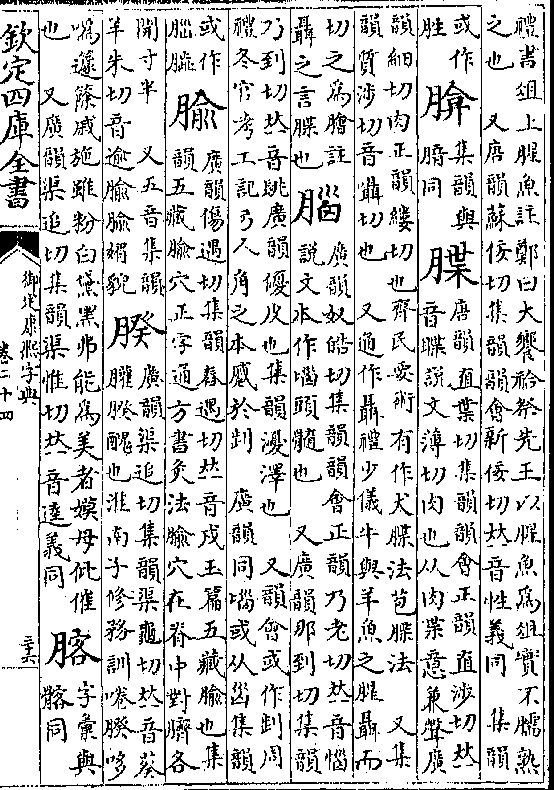 禮書俎上腥魚註鄭曰大饗祫祭先王以腥魚爲俎實不臑熟
之也　又唐韻蘇佞切集韻韻會新佞切𠀤音性義同　集韻
或作胜　𦜳　集韻與腤同　䐑　唐韻直葉切集韻韻會正韻直涉切𠀤音牒說文薄切肉也从肉枼意兼聲廣
韻細切肉正韻縷切也齊民要術有作犬䐑法苞䐑法　又集
韻質涉切音讋切也　又通作聶禮少儀牛與羊魚之腥聶而
切之爲膾註聶之言䐑也　腦　廣韻奴皓切集韻韻會正韻乃老切𠀤音惱說文本作𡿺頭髓也　又廣韻那到切集韻
乃到切𠀤音䏚廣韻優皮也集韻㴩澤也　又韻會或作𠜶周
禮冬官考工記弓人角之本蹙於𠜶　廣韻同𡿺或从𠚑集韻
或作腦𦠊　腧　廣韻傷遇切集韻舂遇切𠀤音戍玉篇五藏腧也集韻五藏腧穴正字通方書灸法腧穴在脊中對臍各
開寸半　又五音集韻羊朱切音逾腧腧媚貌　䐋　廣韻渠追切集韻渠龜切𠀤音葵䑏䐋醜也淮南子修務訓啳䐋哆
噅籧篨戚施雖粉白黛黑弗能爲美者嫫母仳倠
也　又廣韻渠追切集韻渠惟切𠀤音逵義同　𦞂　字彙與髂同
欽定四庫全書
御定康熙字典
卷二十四